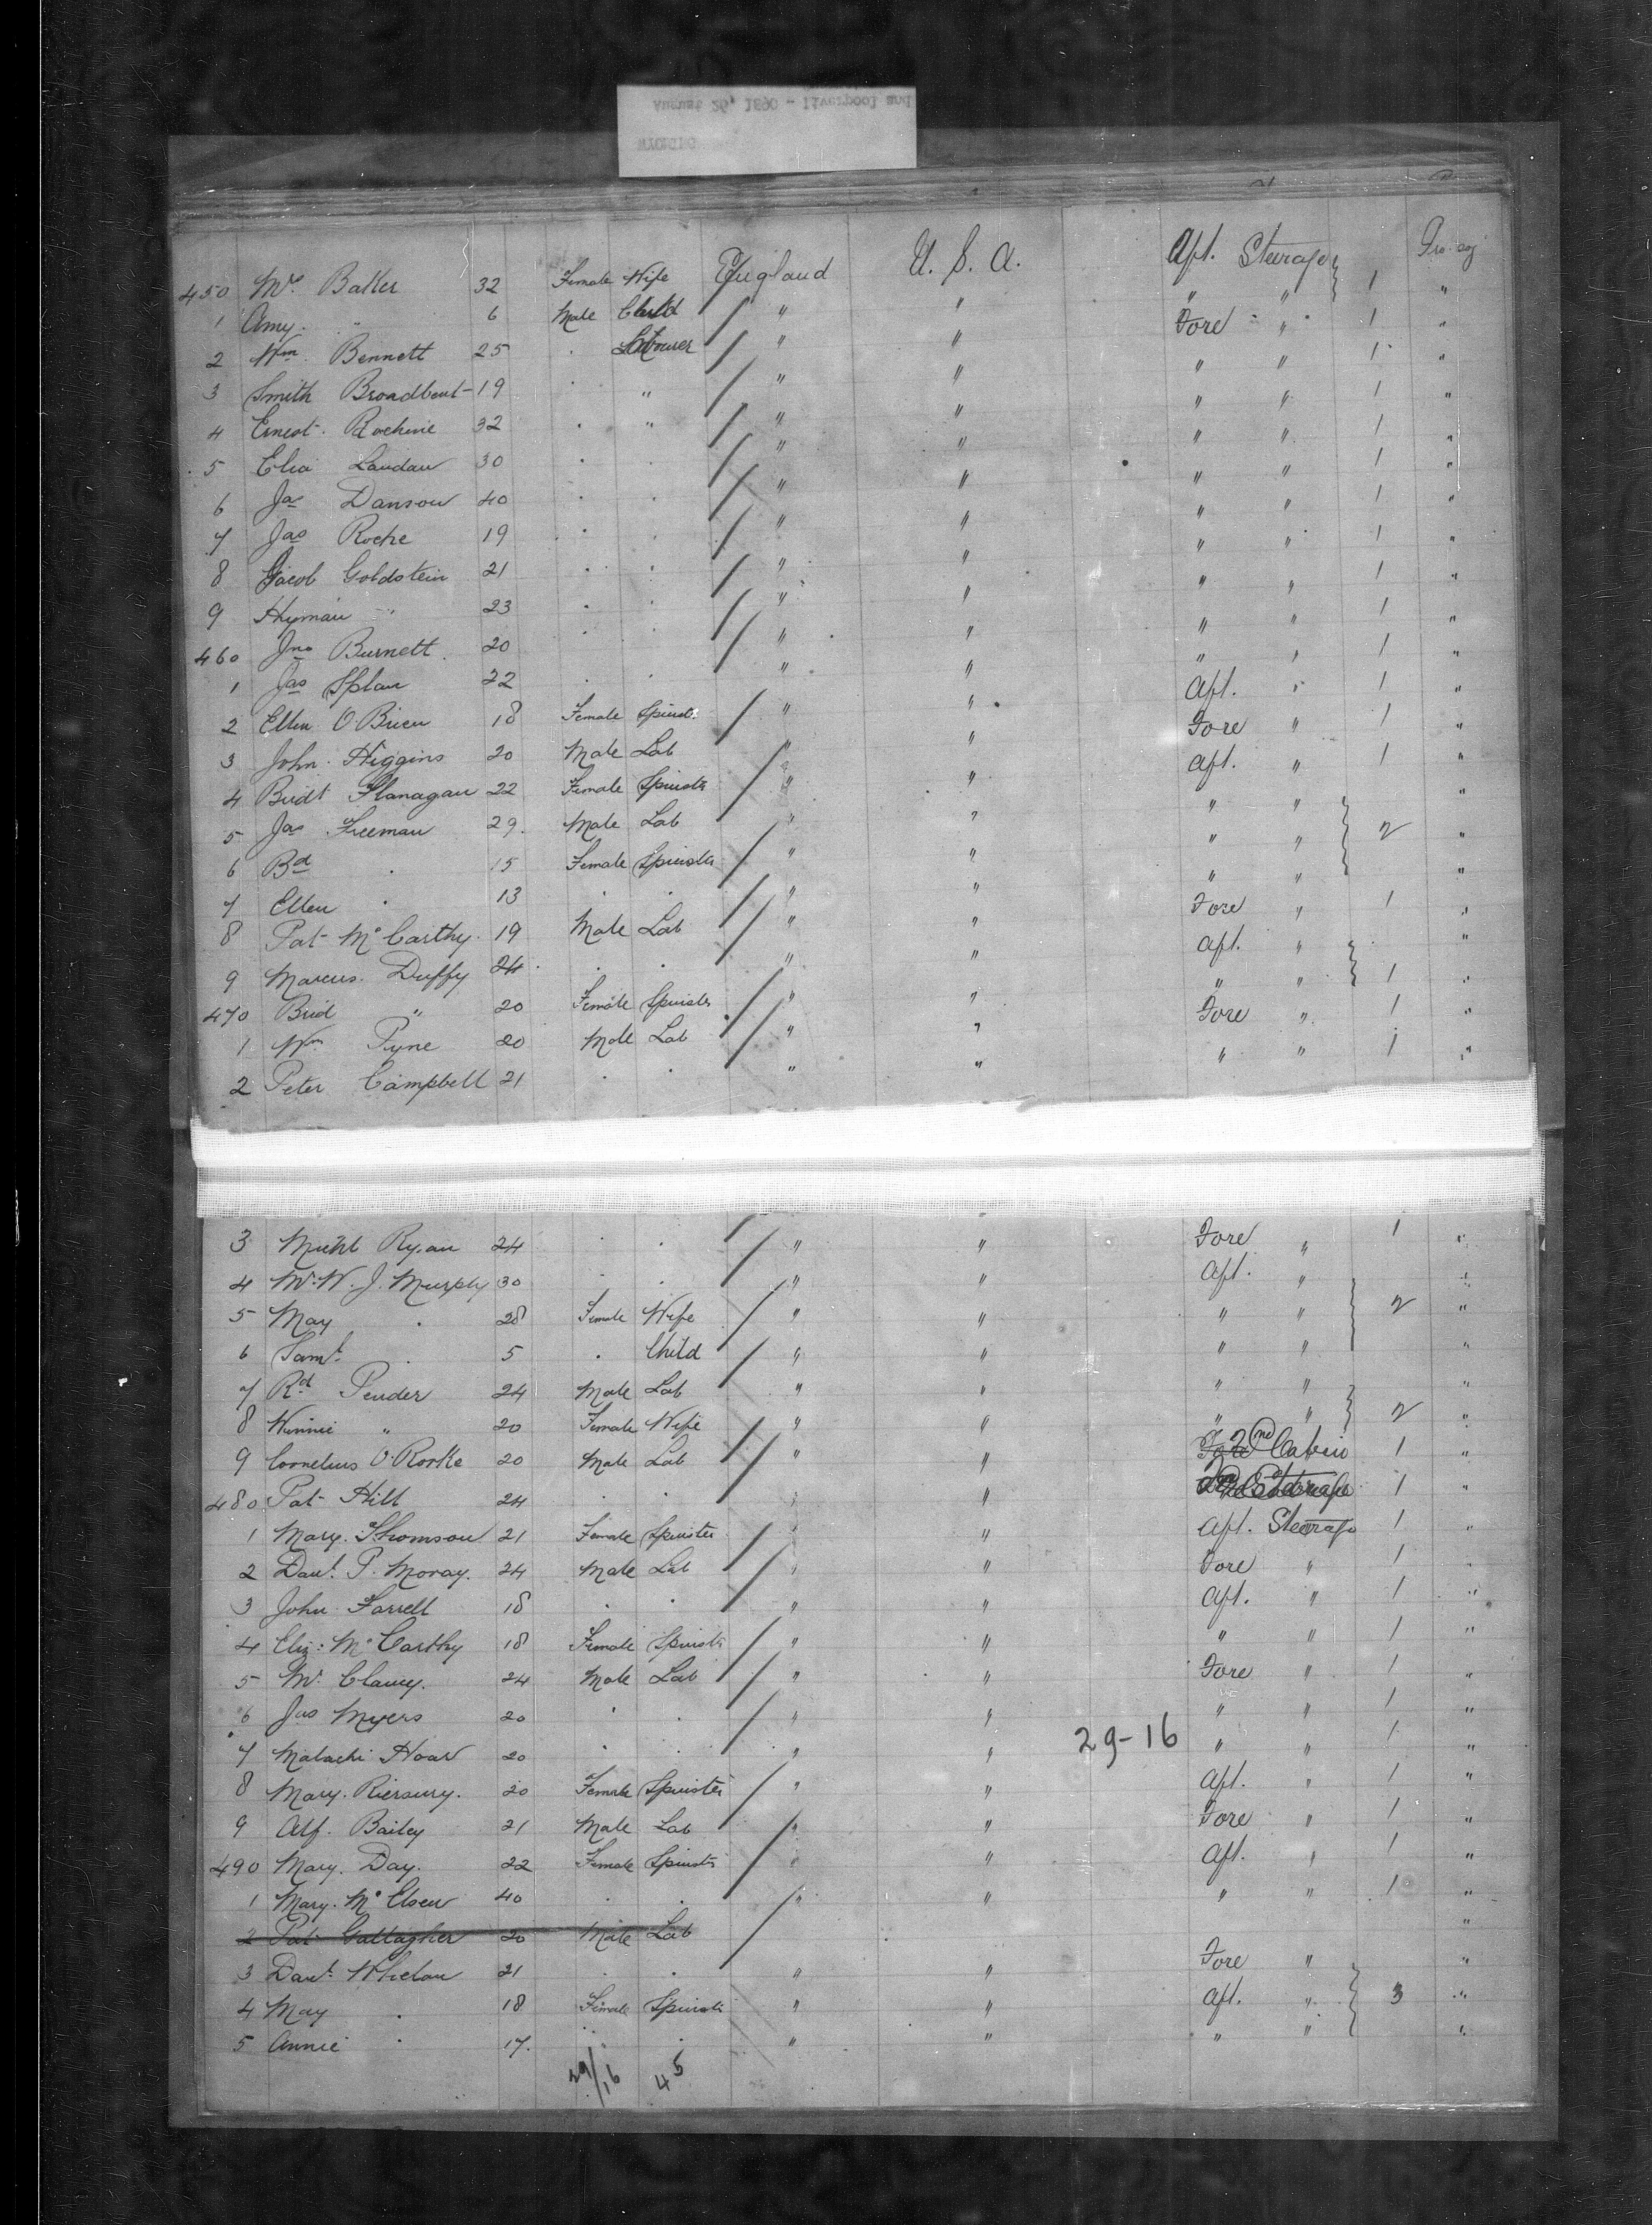 August 26, 1890 - Liverpool and
WYOMING
450 Mrs Baker 32 Female Wife England U. S. A. Aft. Steerage 1
1 Amy " 6 Male Child " " " " "
2 Wm Bennett 25 . Labourer " " Fore " 1 "
3 Smith Broadbent 19 . " " " " " 1 "
4 Ernest 32 . " " " " " 1 "
5 Elia Landau 30 . . " " " " 1 "
6 Jas Danson 40 . . " " " " 1 "
7 Jas Roche 19 . . " " " " 1 "
8 Jacob Goldstein 21 . . " " " " 1 "
9 Hyman " 23 . . " " " " 1 "
460 Jno Burnett 20 . . " " " " 1 "
1 Jas Splan 22 . . " " " " 1 "
2 Ellen O'Brien 18 Female Spinstr " " Aft. " 1 "
3 John Higgins 20 Male Lab " " Fore " 1 "
4 Bridt Flanagan 22 Female Spinster " " Aft. " 1 "
5 Jas Freeman 29 Male Lab " " " " "
6 Bd . 15 Female Spinster " " " " 2 "
7 Ellen . 13 . . " " " " "
8 Pat McCarthy 19 Male Lab " " Fore " 1 "
9 Marcus Duffy 24 . . " " Aft. " "
470 Brid " 20 Female Spinster " " " " 1 "
1 Wm Pyne 20 Male Lab " " Fore " 1 "
2 Peter Campbell 21 . . " " " " 1 "
3 Michl Ryan 24 . . " " Fore " 1 "
4 Mr. W. J. Murphy 30 . . " " Aft. " "
5 May . 28 Female Wife " " " " 2 "
6 Saml . 5 . Child " " " " "
7 Rd Pender 24 Male Lab " " " " "
8 Winnie " 20 Female Wife " " " " 2 "
9 Cornelius O'Rorke 20 Male Lab " " 2nd Cabin 1 "
480 Pat Hill 24 . . " " 1 "
1 Mary Thomson 21 Female Spinster " " Aft. Steerage 1 "
2 Danl. P. Moray 24 Male Lab " " Fore " 1 "
3 John Farrell 18 . . " " Aft. " 1 "
4 Eliz: McCarthy 18 Female Spinstr " " " " 1 "
5 M. Clancy 24 Male Lab " " Fore " 1 "
6 Jas Myers 20 . . " " " " 1 "
7 Malachi Hoar 20 . . " " 29-16 " " 1 "
8 Mary 20 Female Spinster " " Aft. " 1 "
9 Alf. Bailey 21 Male Lab " " Fore " 1 "
490 Mary Day 22 Female Spinstr " " Aft. " 1 "
1 Mary 40 . . " " " " 1 "
2 Pat Gallagher 20 Male Lab "
3 Danl. Whelan 21 . . " " Fore " "
4 May . 18 Female Spinstr " " Aft. " 3 "
5 Annie . 17 . . " " " " "
29/16 45